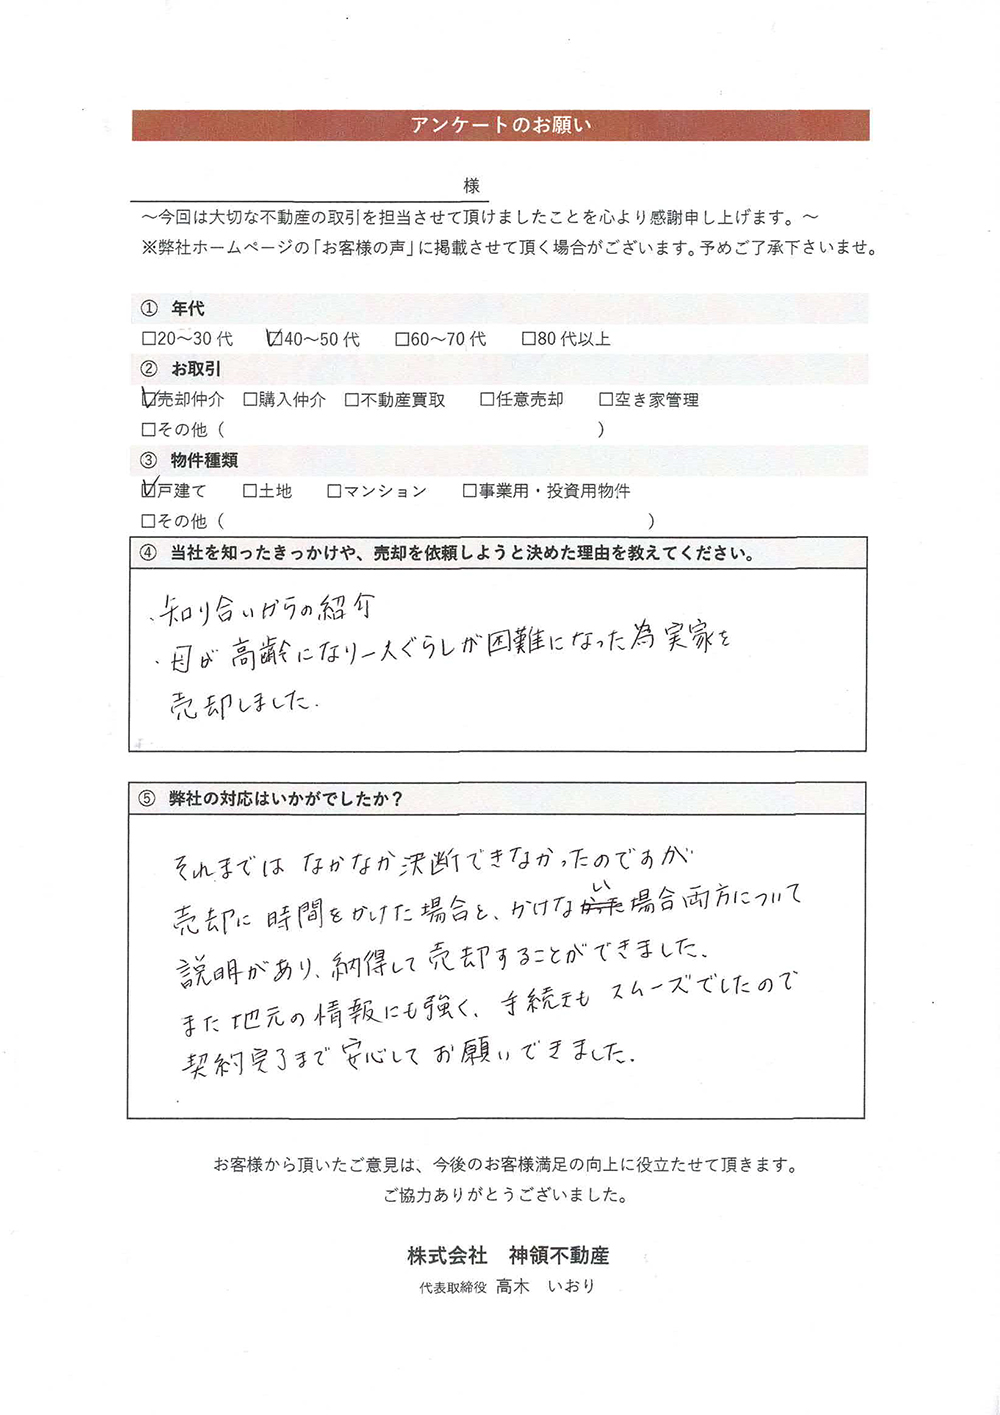 アンケートのお願い
様
～今回は大切な不動産の取引を担当させて頂けましたことを心より感謝申し上げます。～
※弊社ホームページの「お客様の声」に掲載させて頂く場合がございます。予めご了承下さいませ。
① 年代
☐20～30代 ☑40～50代 ☐60～70代 ☐80代以上
② お取引
☑売却仲介 ☐購入仲介 ☐不動産買取 ☐任意売却 ☐空き家管理
☐その他（ ）
③ 物件種類
☑戸建て ☐土地 ☐マンション ☐事業用・投資用物件
☐その他（ ）
④ 当社を知ったきっかけや、売却を依頼しようと決めた理由を教えてください。
・知り合いからの紹介
・母が高齢になり一人ぐらしが困難になった為実家を
売却しました.
⑤ 弊社の対応はいかがでしたか？
それまでは なかなか決断できなかったのですが
売却に時間をかけた場合と、かけない場合両方について
説明があり、納得して売却することができました.
また地元の情報にも強く、手続きも スムーズでしたので
契約完了まで安心してお願いできました.
お客様から頂いたご意見は、今後のお客様満足の向上に役立たせて頂きます。
ご協力ありがとうございました。
株式会社 神領不動産
代表取締役 高木 いおり